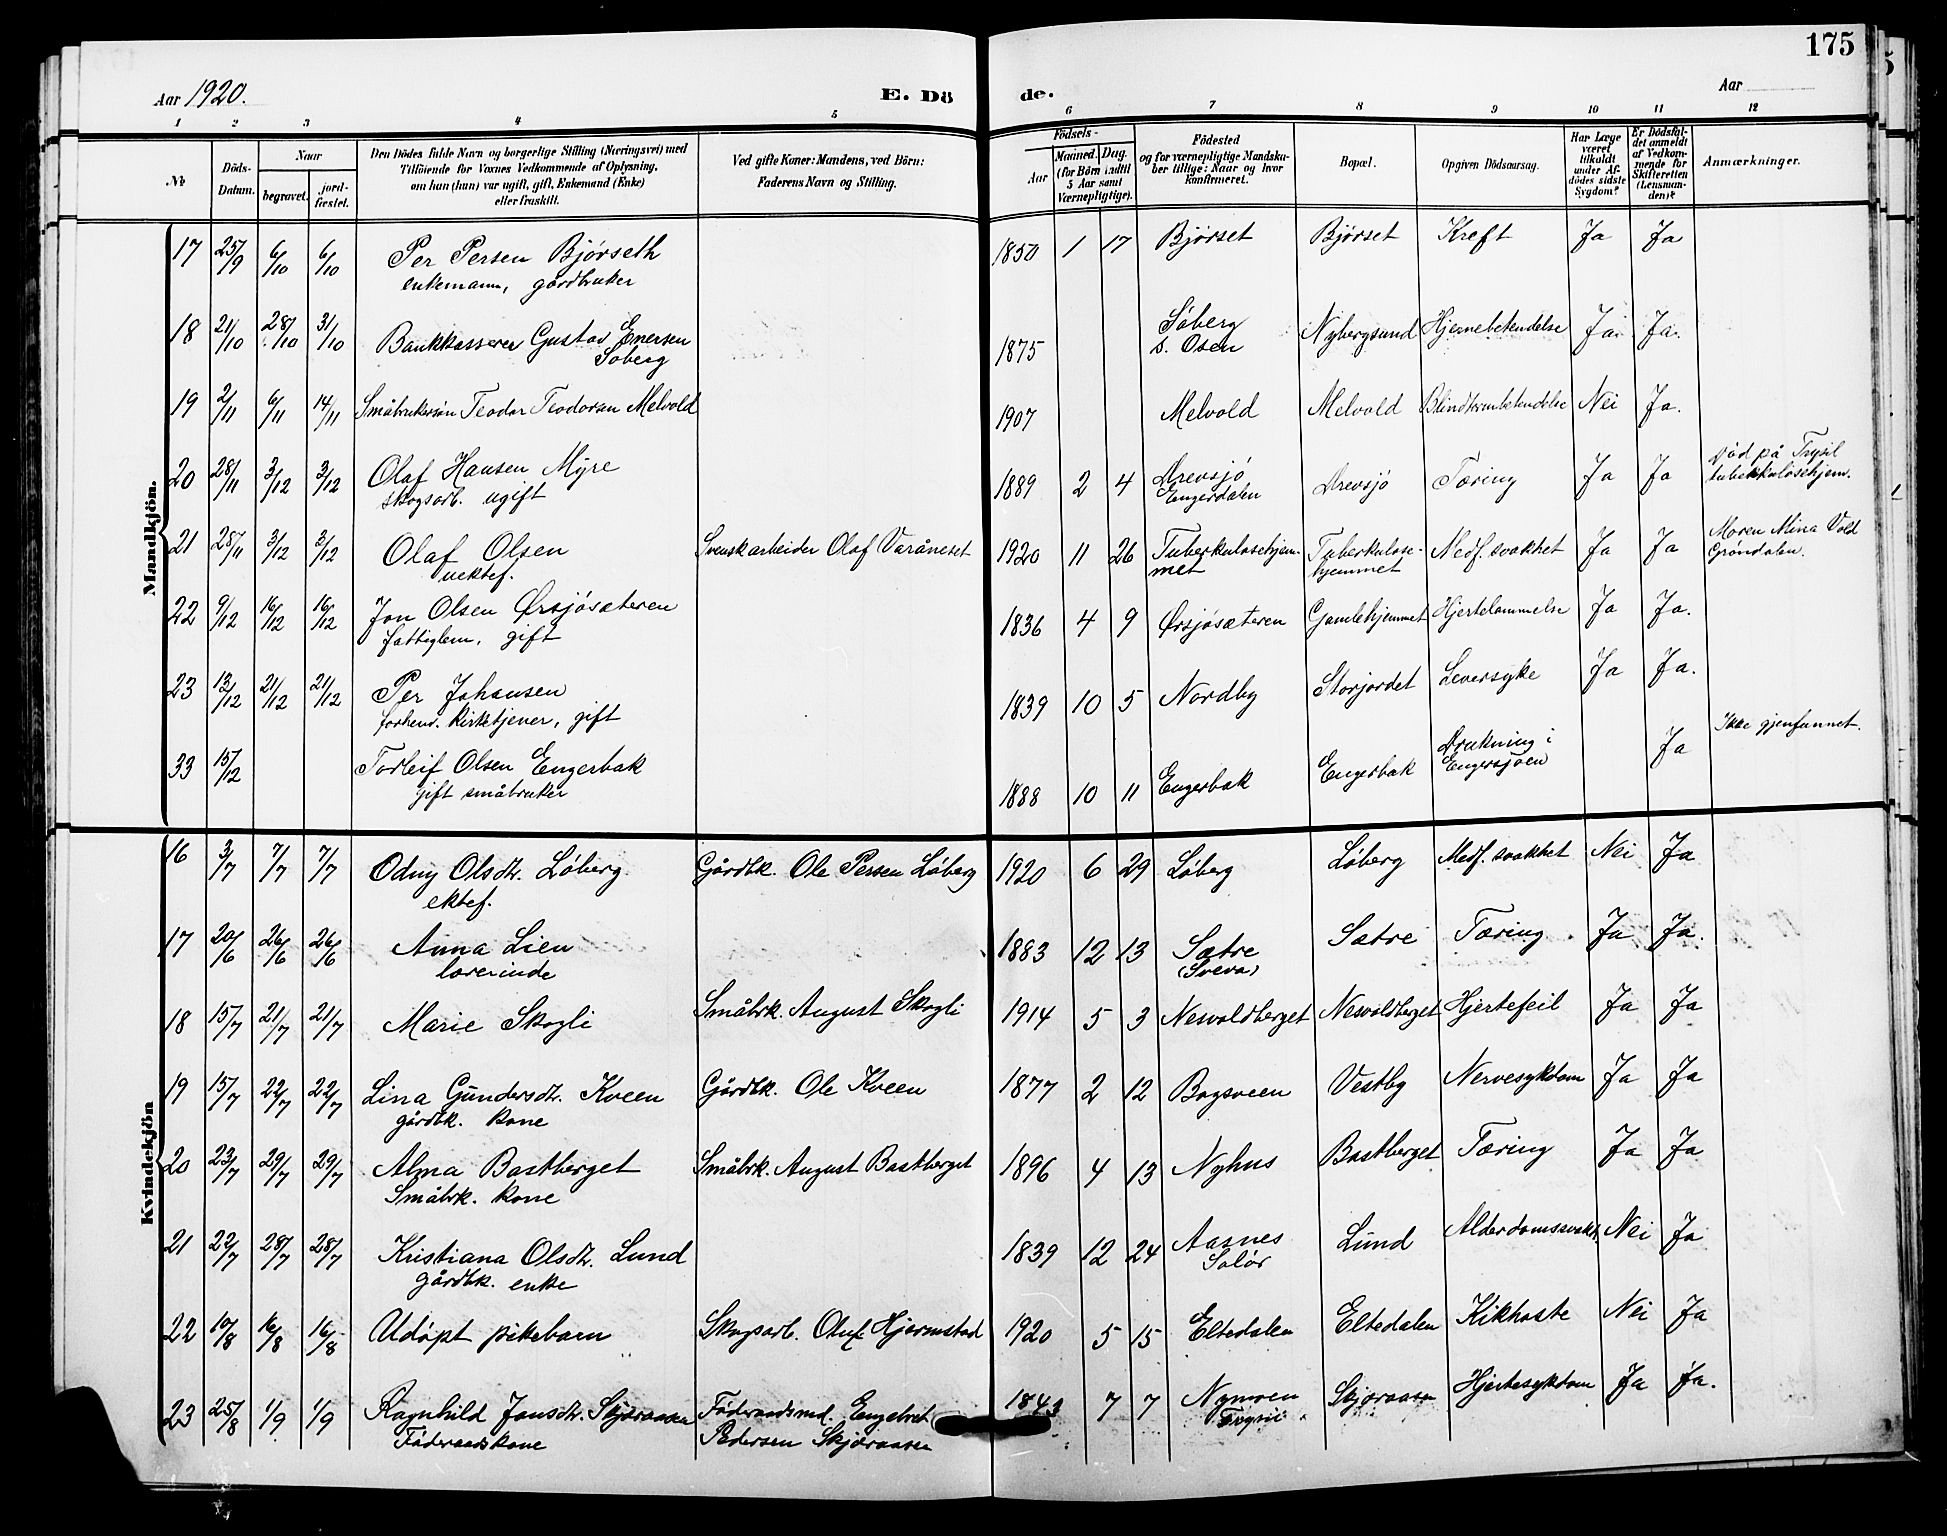 175
Aar 1920.
E. Dö de.
Aar
1 2 3 4 5 6 7 8 9 10 11 12
No
Döds-Datum.
Naar
begravet.
jord-fæstet.
Den Dödes fulde Navn og borgerlige Stilling (Næringsvei) med
Tilföiende for Voxnes Vedkommende af Oplysning,
om han (hun) var ugift, gift, Enkemand (Enke)
eller fraskilt.
Ved gifte Koner: Mandens, ved Börn:
Faderens Navn og Stilling.
Födsels-
Aar
Maaned. Dag.
(for Börn indtil
5 Aar samt
Værnepligtige).
Födested
og for værnepligtige Mandska-
ber tillige: Naar og hvor
konfirmeret.
Bopæl.
Opgiven Dödsaarsag.
Har Læge
været
tilkaldt
under Af-
dödes sidste
Sygdom?
Er Dödsfal-
det anmeldt
af Vedkom-
mende for
Skifteretten
(Lensman-
den)?
Anmærkninger.
Mandkjön.
17 25/9 6/10 6/10 Per Persen Bjørseth 1850 1 17 Bjørset Bjørset Kreft Ja Ja
enkemann, gårdbruker
18 21/10 28/10 31/10 Bankkasserer Gustav Enersen 1875 Søberg Nybergsund Hjernebetendelse Ja Ja.
Søberg s. Osen
19 2/11 6/11 14/11 Småbrukersøn Teodor Teodorsen Melvold 1907 Melvold Melvold Blindtarmbetendelse Nei Ja.
20 28/11 3/12 3/12 Olaf Hansen Myre 1889 2 4 Drevsjø Drevsjø Tæring Ja Ja Død på Trysil
skogsarb. ugift Engerdalen tuberkulosehjem.
21 28/11 3/12 3/12 Olaf Olsen Svensk arbeider Olof Varåneset 1920 11 26 Tuberkulosehjem- Tuberkulose- Medf. svakhet Ja Ja Moren Mina Vold
uektef. met hjemmet Grøndalen.
22 9/12 16/12 16/12 Jon Olsen Ørsjøsæteren 1836 4 9 Ørsjøsæteren Gamlehjemmet Hjertelammelse Ja Ja.
fattiglem, gift
23 13/12 21/12 21/12 Per Johansen 1839 10 5 Nordby Storjordet Leversyke Ja Ja.
forhenv. kirketjener, gift
33 15/12 Torleif Olsen Engerbak 1888 10 11 Engerbak Engerbak Drukning i Ja Ikke gjenfunnet.
gift småbruker Engersjøen
Kvindekjön
16 3/7 7/7 7/7 Odny Olsdtr. Løberg Gårdbk. Ole Persen Løberg 1920 6 29 Løberg Løberg Medf. svakhet Nei Ja
ektef.
17 20/6 26/6 26/6 Anna Lien 1883 12 13 Sætre Sætre Tæring Ja Ja.
lærerinde
18 15/7 21/7 21/7 Marie Skogli Småbrk. August Skogli 1914 5 3 Nesvoldberget Nesvoldberget Hjertefeil Ja Ja
19 15/7 22/7 22/7 Lina Gundersdtr. Kveen Gårdbk. Ole Kveen 1877 2 12 Bagsveen Vestby Nervesykdom Ja Ja
gårdbk. kone
20 23/7 29/7 29/7 Alma Bastberget Småbrk. August Bastberget 1896 4 13 Nyhus Bastberget Tæring Ja Ja
Småbrk. kone
21 22/7 28/7 28/7 Kristiana Olsdtr. Lund 1839 12 24 Aasnes Lund Alderdomssvakh. Nei Ja
gårdbk. enke Solør
22 10/8 16/8 16/8 Udøpt pikebarn Skogsarb. Oluf Hjermstad 1920 5 15 Eltedalen Eltedalen Kikhoste Nei Ja
23 25/8 1/9 1/9 Ragnhild Jonsdtr. Skjøraasen Føderaadsmd. Engebret 1843 7 7 Nymoen Skjøraasen Hjertesykdom Ja Ja.
Føderaadskone Pedersen Skjøraasen Trysil